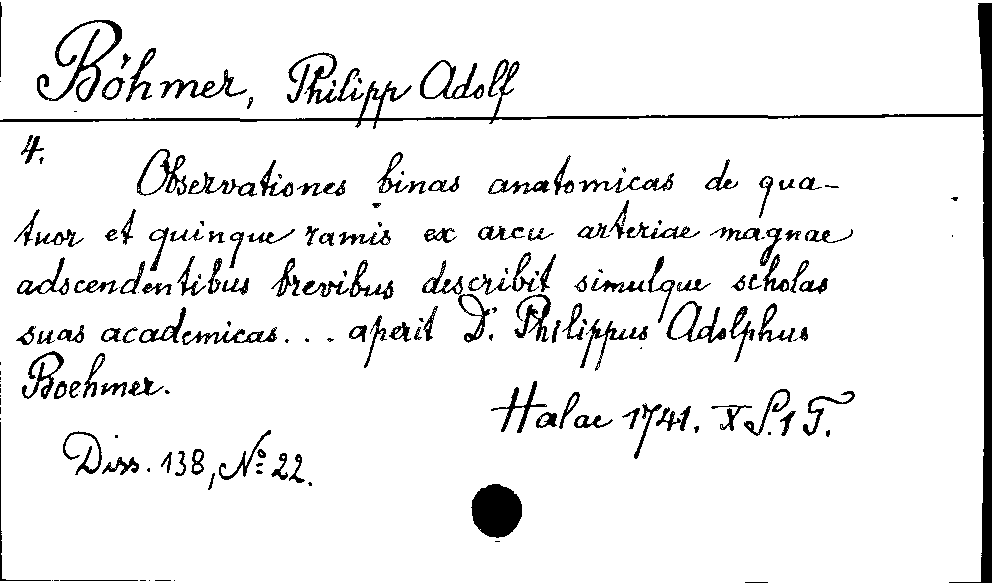 Böhmer, Philipp Adolf
4.
Observationes binas anatomicas de qua-
tuor et quinque ramis ex arcu arteriae magnae
adscendentibus brevibus describit simulque scholas
suas academicas... aperit D. Philippus Adolphus
Boehmer.
Halae 1741. X S. 1 T.
Diss. 138, No 22.